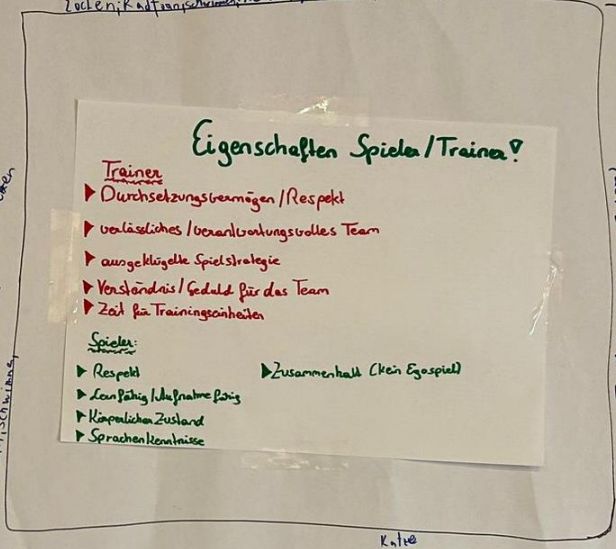 Eigenschaften Spieler/Trainer!
Trainer
Durchsetzungsvermögen/Respekt
verlässliches/verantwortungsvolles Team
ausgeklügelte Spielstrategie
Verständnis/Geduld für das Team
Zeit für Trainingseinheiten
Spieler:
Respekt
Zusammenhalt (kein Egospiel)
Lernfähig/Aufnahmefähig
Körperlicher Zustand
Sprachenkenntnisse
Katze